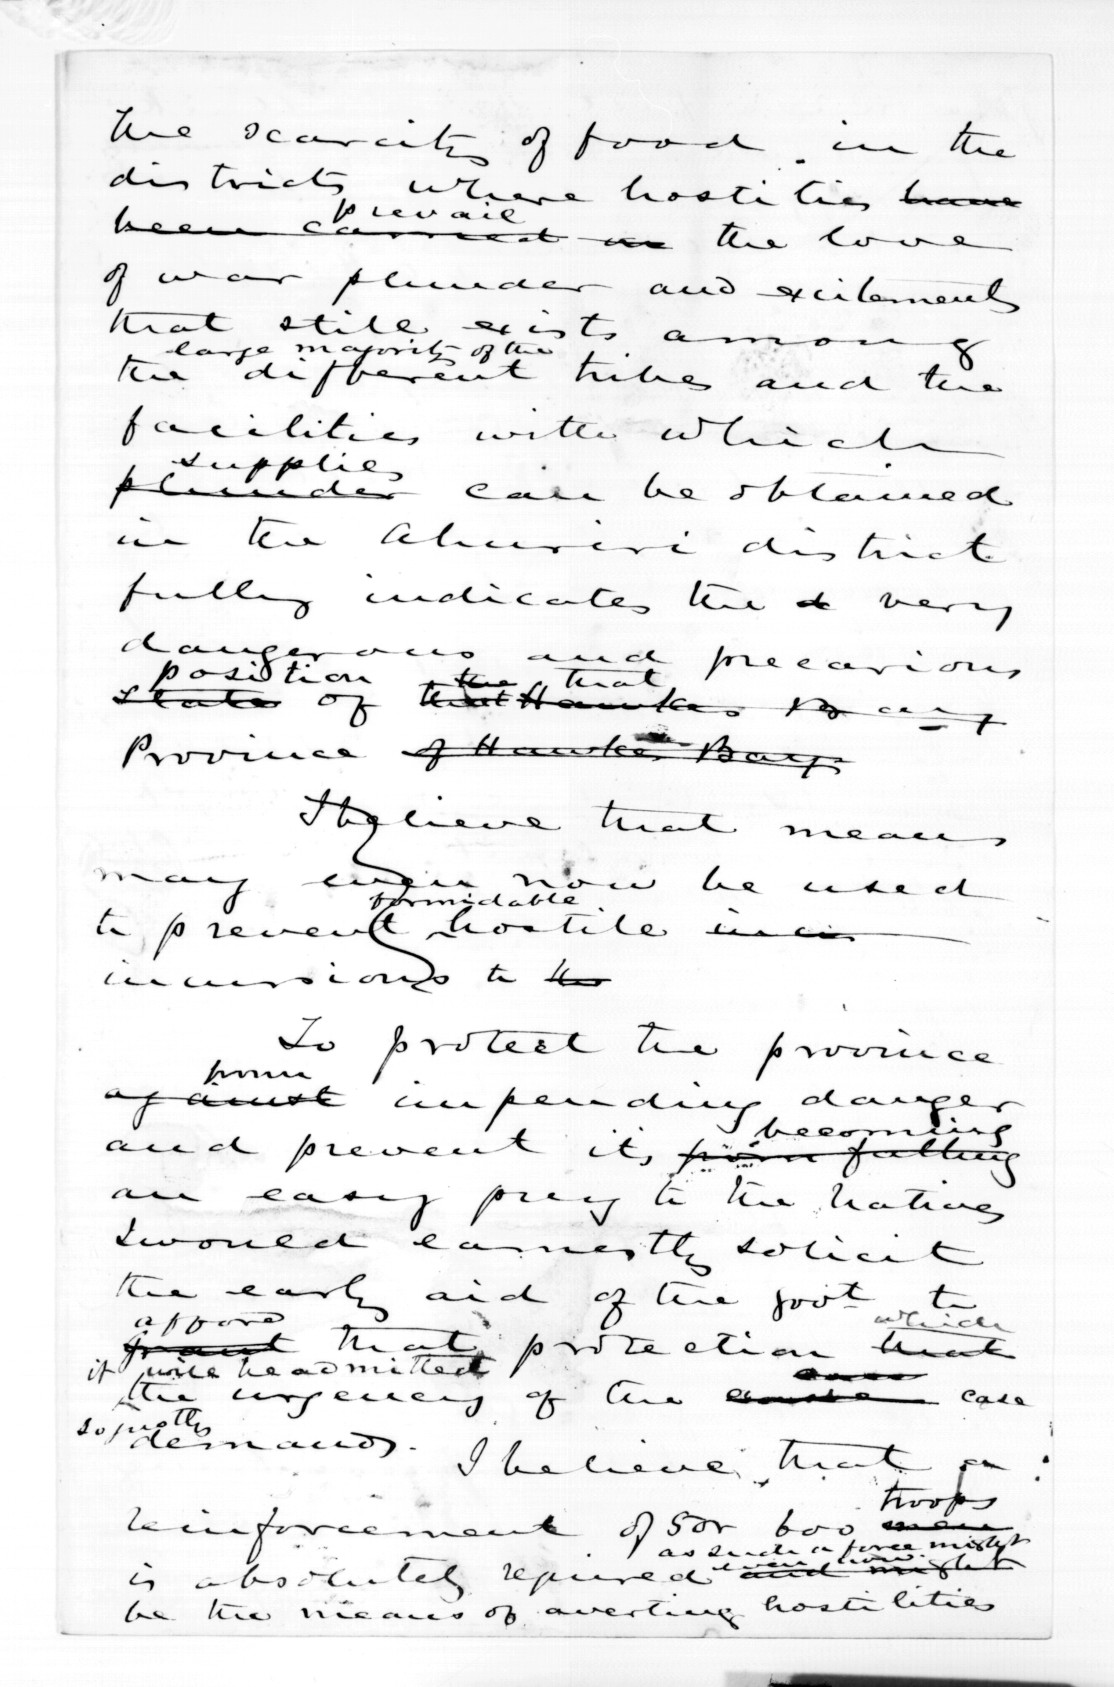 the scarcity of food in the
districts where hostilities have
prevail
been carried on the love
of war plunder and excitements
that still exists among
large majority of the
the different tribes and the
facilities with which
supplies
plunder can be obtained
in the Ahuriri district
fully indicates the very
dangerous and precarious
position the that
state of that Hawkes Bay
Province of Hawkes Bay
I believe that means
may even now be used
formidable
to prevent hostile
incursions to
To protect the province
from
against impending danger
becoming
and prevent its from falling
an easy prey to the Natives
I would earnestly solicit
the early aid of the Govt to
afford which
grant that protection that
it will be admitted
the urgency of the case
so justly
demands. I believe that a
troops
reinforcement of 5 or 600 men
as such a force might
even now
is absolutely required and might
be the means of averting hostilities